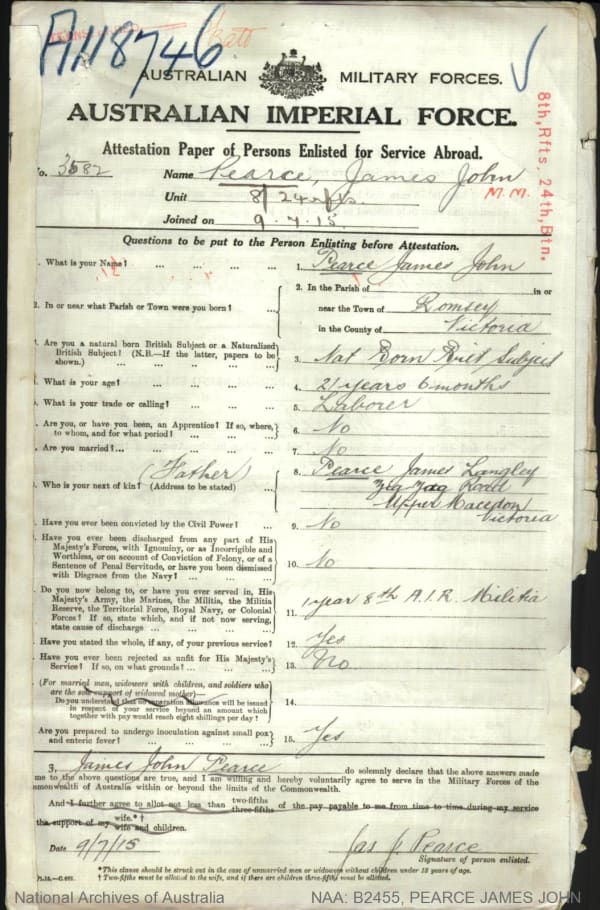 A118746
AUSTRALIAN MILITARY FORCES.
AUSTRALIAN IMPERIAL FORCE.
8th, Rfts, 24th, Btn.
Attestation Paper of Persons Enlisted for Service Abroad.
No. 3582 Name Pearce, James John
M.M.
Unit 8/24 rfts.
Joined on 9.7.15.
Questions to be put to the Person Enlisting before Attestation.
1. What is your Name? ... ... ... ... 1. Pearce James John
2. In or near what Parish or Town were you born? ... ... 2. In the Parish of in or
near the Town of Romsey
in the County of Victoria
Are you a natural born British Subject or a Naturalized
British Subject? (N.B.—If the latter, papers to be
shown.) ... ... ... ... 3. Nat Born Brit Subject
What is your age? ... ... ... ... 4. 21 years 6 months
What is your trade or calling? ... ... ... 5. Laborer
Are you, or have you been, an Apprentice? If so, where,
to whom, and for what period? ... ... ... 6. No
Are you married? ... ... ... ... 7. No
Who is your next of kin? (Address to be stated) ... (Father) 8. Pearce James Langley
Zig Zag Road
Upper Macedon
Victoria
Have you ever been convicted by the Civil Power? ... ... 9. No
Have you ever been discharged from any part of His
Majesty's Forces, with Ignominy, or as Incorrigible and
Worthless, or on account of Conviction of Felony, or of a
Sentence of Penal Servitude, or have you been dismissed
with Disgrace from the Navy? ... ... ... 10. No
Do you now belong to, or have you ever served in, His
Majesty's Army, the Marines, the Militia, the Militia
Reserve, the Territorial Force, Royal Navy, or Colonial
Forces? If so, state which, and if not now serving,
state cause of discharge ... ... ... 11. 1 year 8th A.I.R. Militia
Have you stated the whole, if any, of your previous service? 12. Yes
Have you ever been rejected as unfit for His Majesty's
Service? If so, on what grounds? ... ... ... 13. No
(For married men, widowers with children, and soldiers who
are the sole support of widowed mother)—
Do you understand that no separation allowance will be issued
in respect of your service beyond an amount which
together with pay would reach eight shillings per day? 14.
Are you prepared to undergo inoculation against small pox
and enteric fever? ... ... ... ... 15. Yes
I, James John Pearce do solemnly declare that the above answers made
me to the above questions are true, and I am willing and hereby voluntarily agree to serve in the Military Forces of the
Commonwealth of Australia within or beyond the limits of the Commonwealth.
And I further agree to allot not less than two-fifths three-fifths of the pay payable to me from time to time during my service
the support of my wife.*† wife and children.
Date 9/7/15 Jas J. Pearce
Signature of person enlisted.
*This clause should be struck out in the case of unmarried men or widowers without children under 18 years of age.
† Two-fifths must be allotted to the wife, and if there are children three-fifths must be allotted.
National Archives of Australia NAA: B2455, PEARCE JAMES JOHN